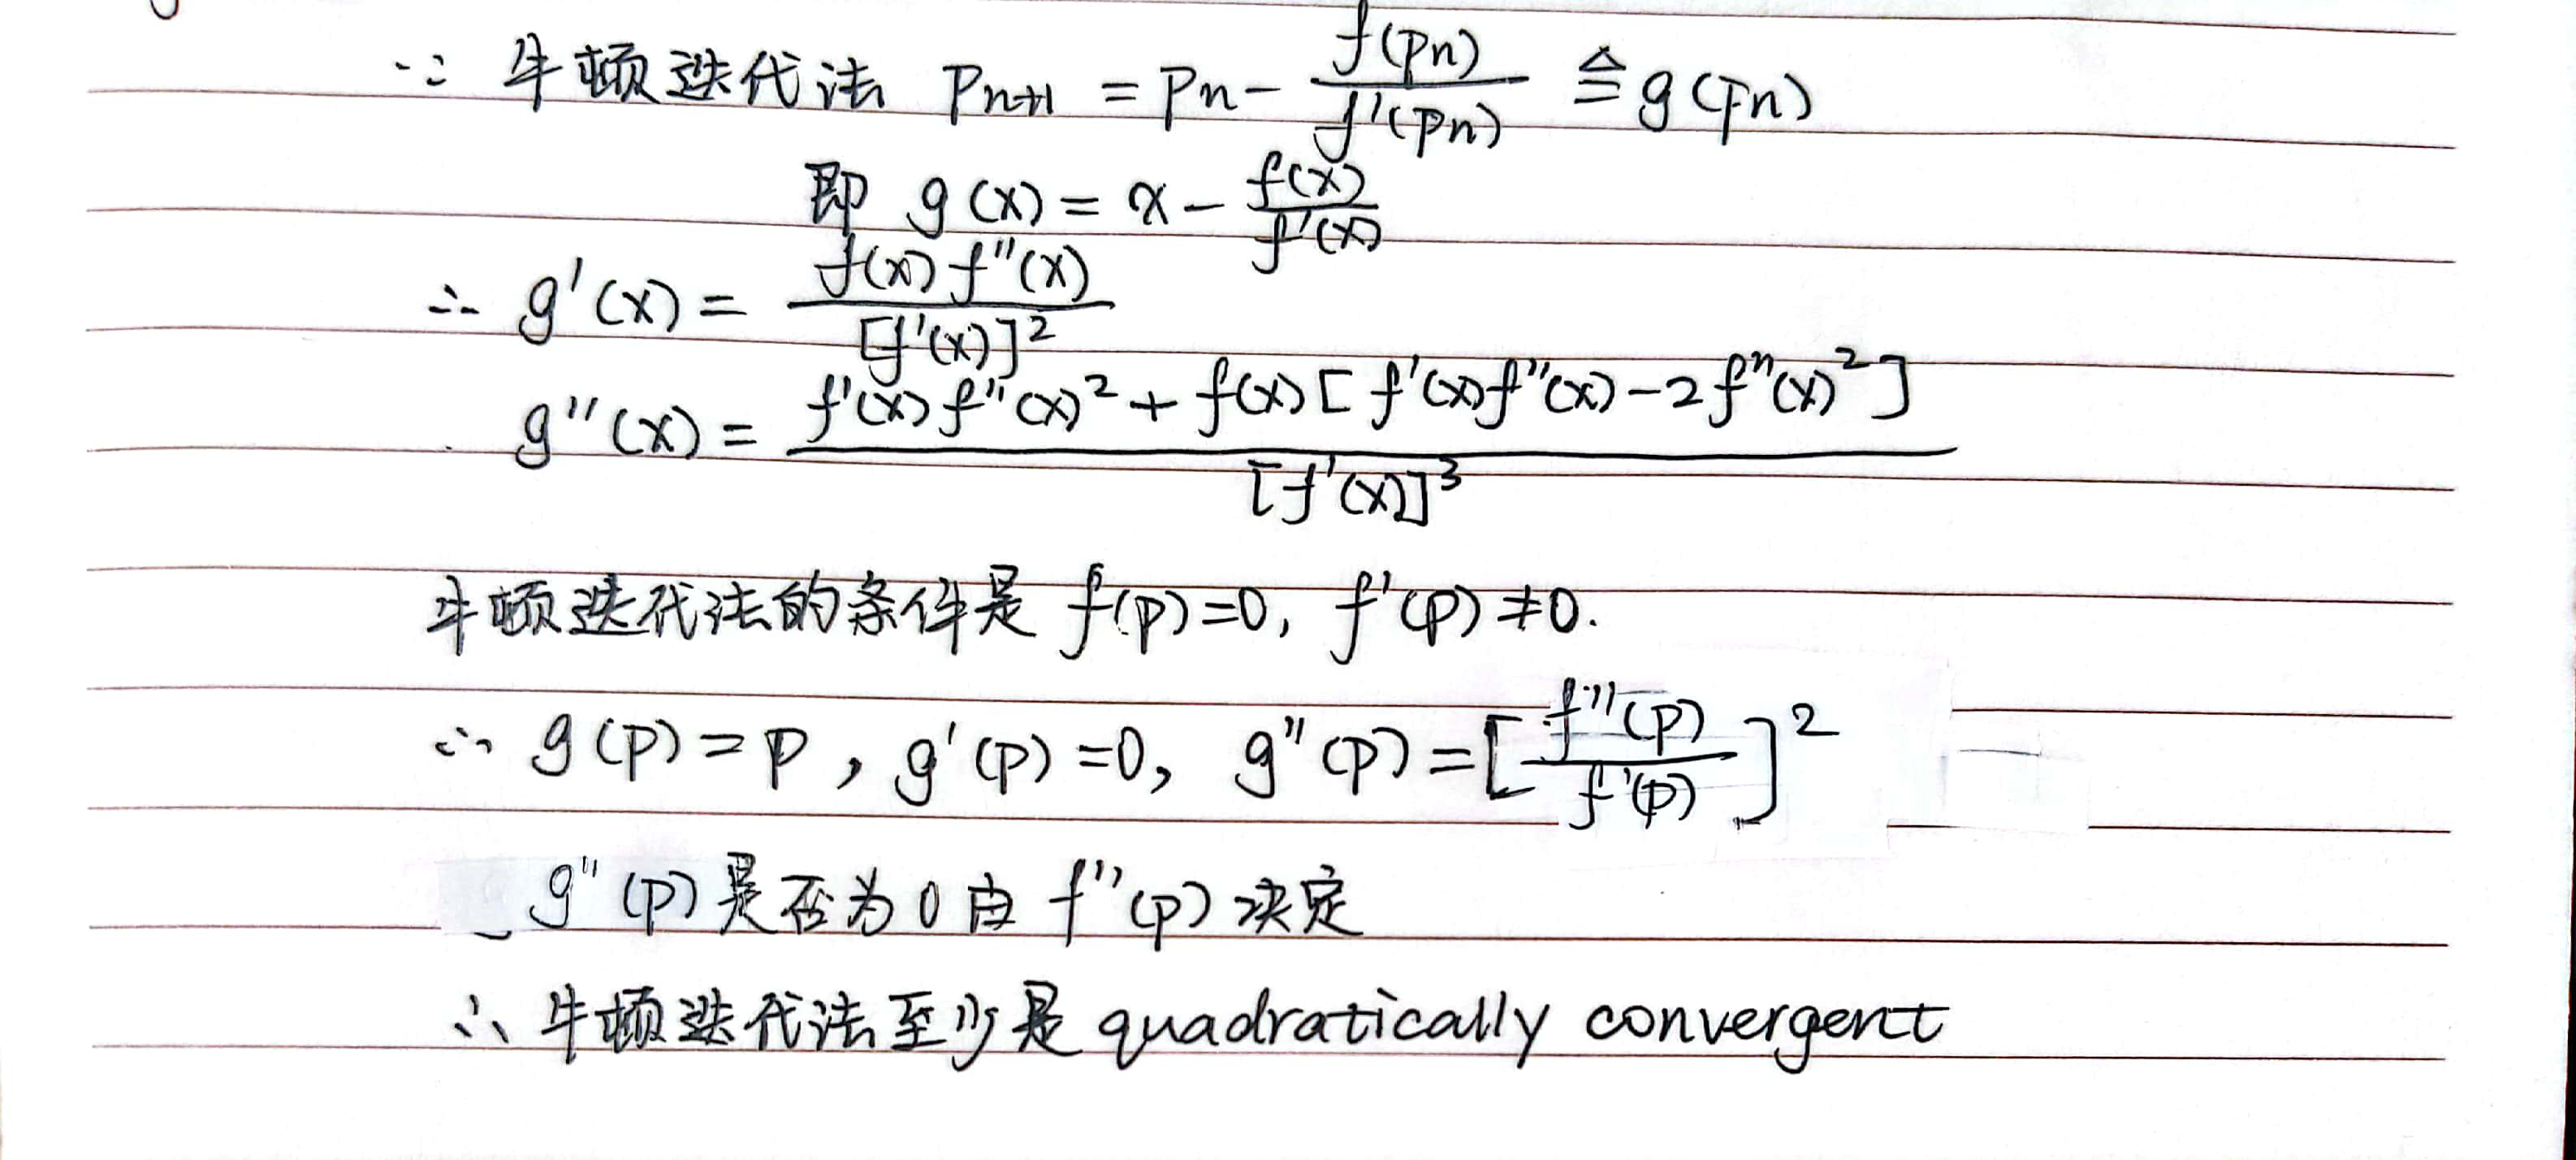 ∵ 牛顿迭代法 Pn+1 = Pn - f(Pn)/f'(Pn) ≜ g(Pn)
即 g(x) = x - f(x)/f'(x)
∴ g'(x) = f(x) f''(x) / [f'(x)]²
g''(x) = f'(x) f''(x)² + f(x) [f'(x) f''(x) - 2f''(x)²] / [f'(x)]³
牛顿迭代法的条件是 f(p)=0, f'(p)≠0.
∴ g(p)=p, g'(p)=0, g''(p)=[f''(p)/f'(p)]²
g''(p)是否为0由 f''(p) 决定
∴ 牛顿迭代法至少是 quadratically convergent